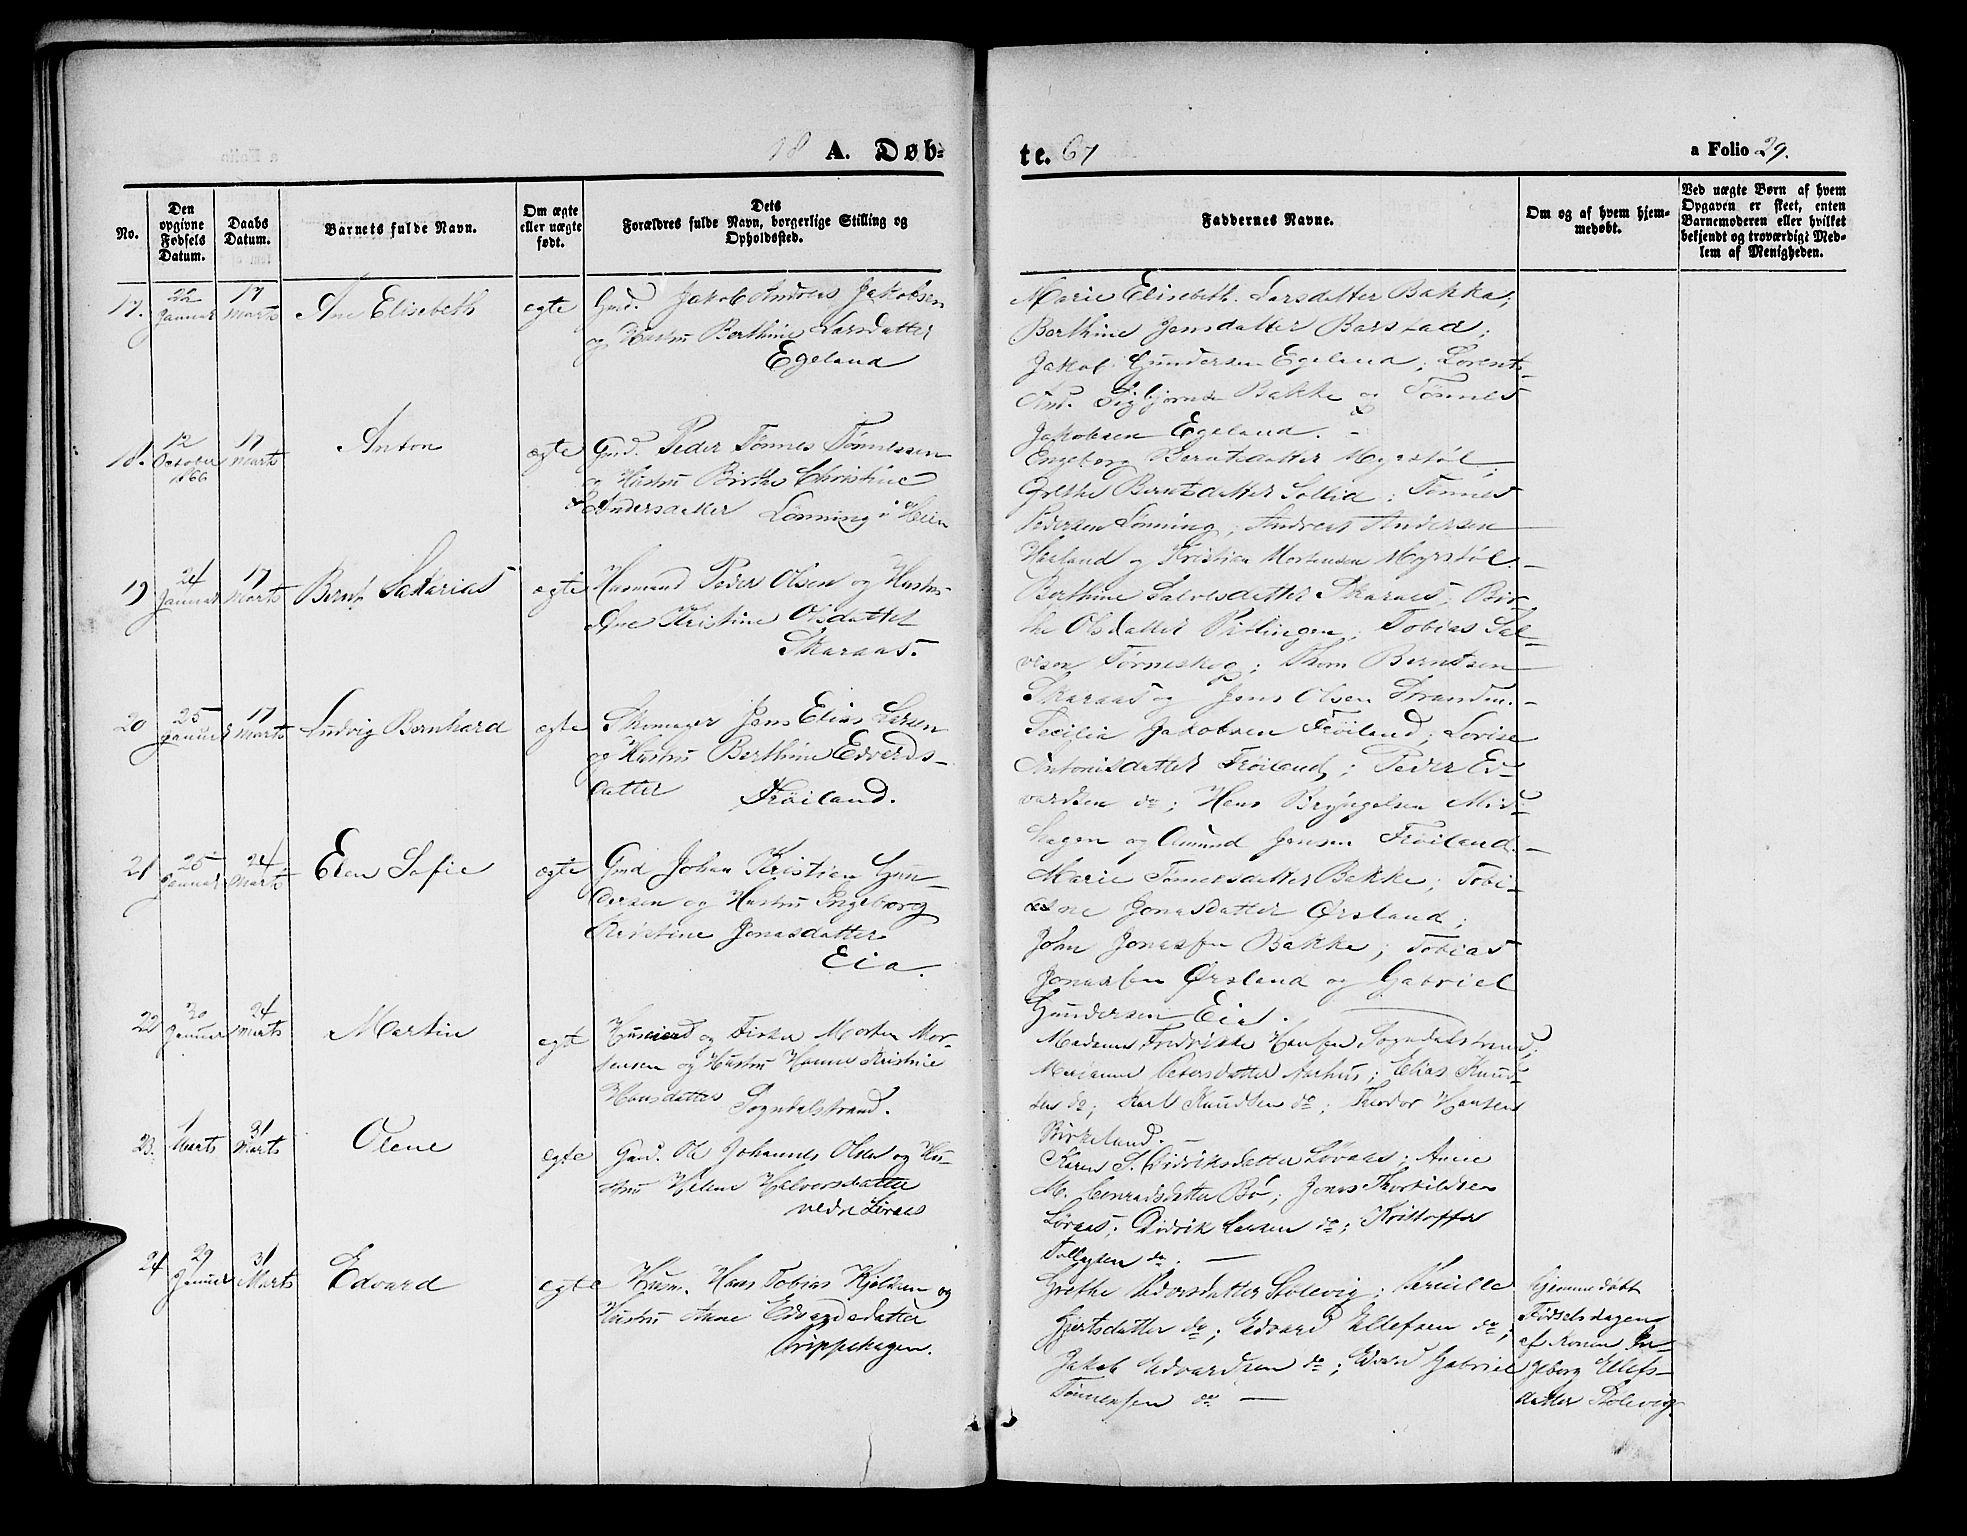 18 A. Døb-
te. 67
a Folio 29.
No.
Den
opgivne
Fødsels
Datum.
Daabs
Datum.
Barnets fulde Navn.
Om ægte
eller uægte
født.
Dets
Forældres fulde Navn, borgerlige Stilling og
Opholdssted.
Faddernes Navne.
Om og af hvem hjem-
medøbt.
Ved uægte Børn af hvem
Opgaven er skeet, enten
Barnemoderen eller hvilket
bekjendt og troværdigt Med-
lem af Menigheden.
17. 22 Januar 17 Marts Ane Elisabeth egte
Gmd. Jakob Andreas Jakobsen
og Hustru Berthine Larsdatter
Egeland
Marie Elisebeth Larsdatter Bakka;
Berthine Jensdatter Barstad;
Jakob Gundersen Egeland; Lorents
And. Sigbjørnsen Bakke og Tønnes
Jakobsen Egeland. -
18. 12 October 1866 17 Marts Anton egte
Gmd. Peder Tønnes Tønnessen
og Hustru Birthe Christine
Andersdatter Lønning i Heien
Engeborg Berntsdatter Myrstøl;
Grethe Berntsdatter Sollid; Tønnes
Pedersen Lønning; Andreas Andersen
Haaland og Kristian Mortensen Myrstøl -
19 24 Januar 17 Marts Bernt Sakarias egte
Husmand Peder Olsen og Hustru
Ane Kristine Olsdatter
Skaraas.
Berthine Salvesdatter Skaraas; Bir-
the Olsdatter Pitlingen; Tobias Sal-
vesen Tørneskog; Thom Berntsen
Skaraas og Jens Olsen Stranden. -
20 25 Januar 17 Marts Ludvig Bernhard egte
Skomager Jens Elias Larsen
og Hustru Berthine Edverds-
datter Frøiland.
Secilia Jakobsen Frøiland; Lovise
Antonisdatter Frøiland; Peder Ed-
vardsen do; Hans Bryngelsen Mid-
hagen og Amund Jensen Frøiland. -
21 25 Januar 24 Marts Elen Sofie egte
Gmd Johan Kristian Gun-
dersen og Hustru Ingeborg
Kristine Jonasdatter
Eia.
Marie Tønnesdatter Bakke; Tobi-
ne Jonasdatter Ørsland;
John Jonassen Bakke; Tobias
Jonassen Ørsland og Gabriel
Gundersen Eia.
22 30 Januar 24 Marts Martin egt
Huseierd og Fisker Morten Mor-
tensen og Hustru Hanne Kristine
Hansdatter Sogndalstrand.
Madame Fredrikke Hansen Sogndalstrand;
Marianne Petersdatter Aarhus; Elias Knud-
sen do; Karl Knudsen do; Theodor Hansen
Birkeland. -
23. 1 Marts 31 Marts Olene egte
Gmd. Ole Johannes Olsen og Hu-
stru Helene Halvorsdatter
nedre Løvaas
Karen S. Didriksdatter Løvaas; Anne
M. Conradsdatter Bø; Jonas Thorkildsen
Løvaas; Didrik Larsen do; Kristoffer
Tollagsen do. -
24 29 Januar 31 Marts Edvard egte
Husm. Hans Tobias Kjeldsen og
Hustru Anne Edvardsdatter
Trippehagen.
Grethe Edvardsdatter Stolevig; Pernille
Gjertsdatter do; Edvard Ellefsen do;
Jakob Edvardsen do; Edvard Gabriel
Tønnessen do -
Hjemmedøbt
Fødselsdagen
af Konen In-
geborg Ellefs-
datter Stolevig.